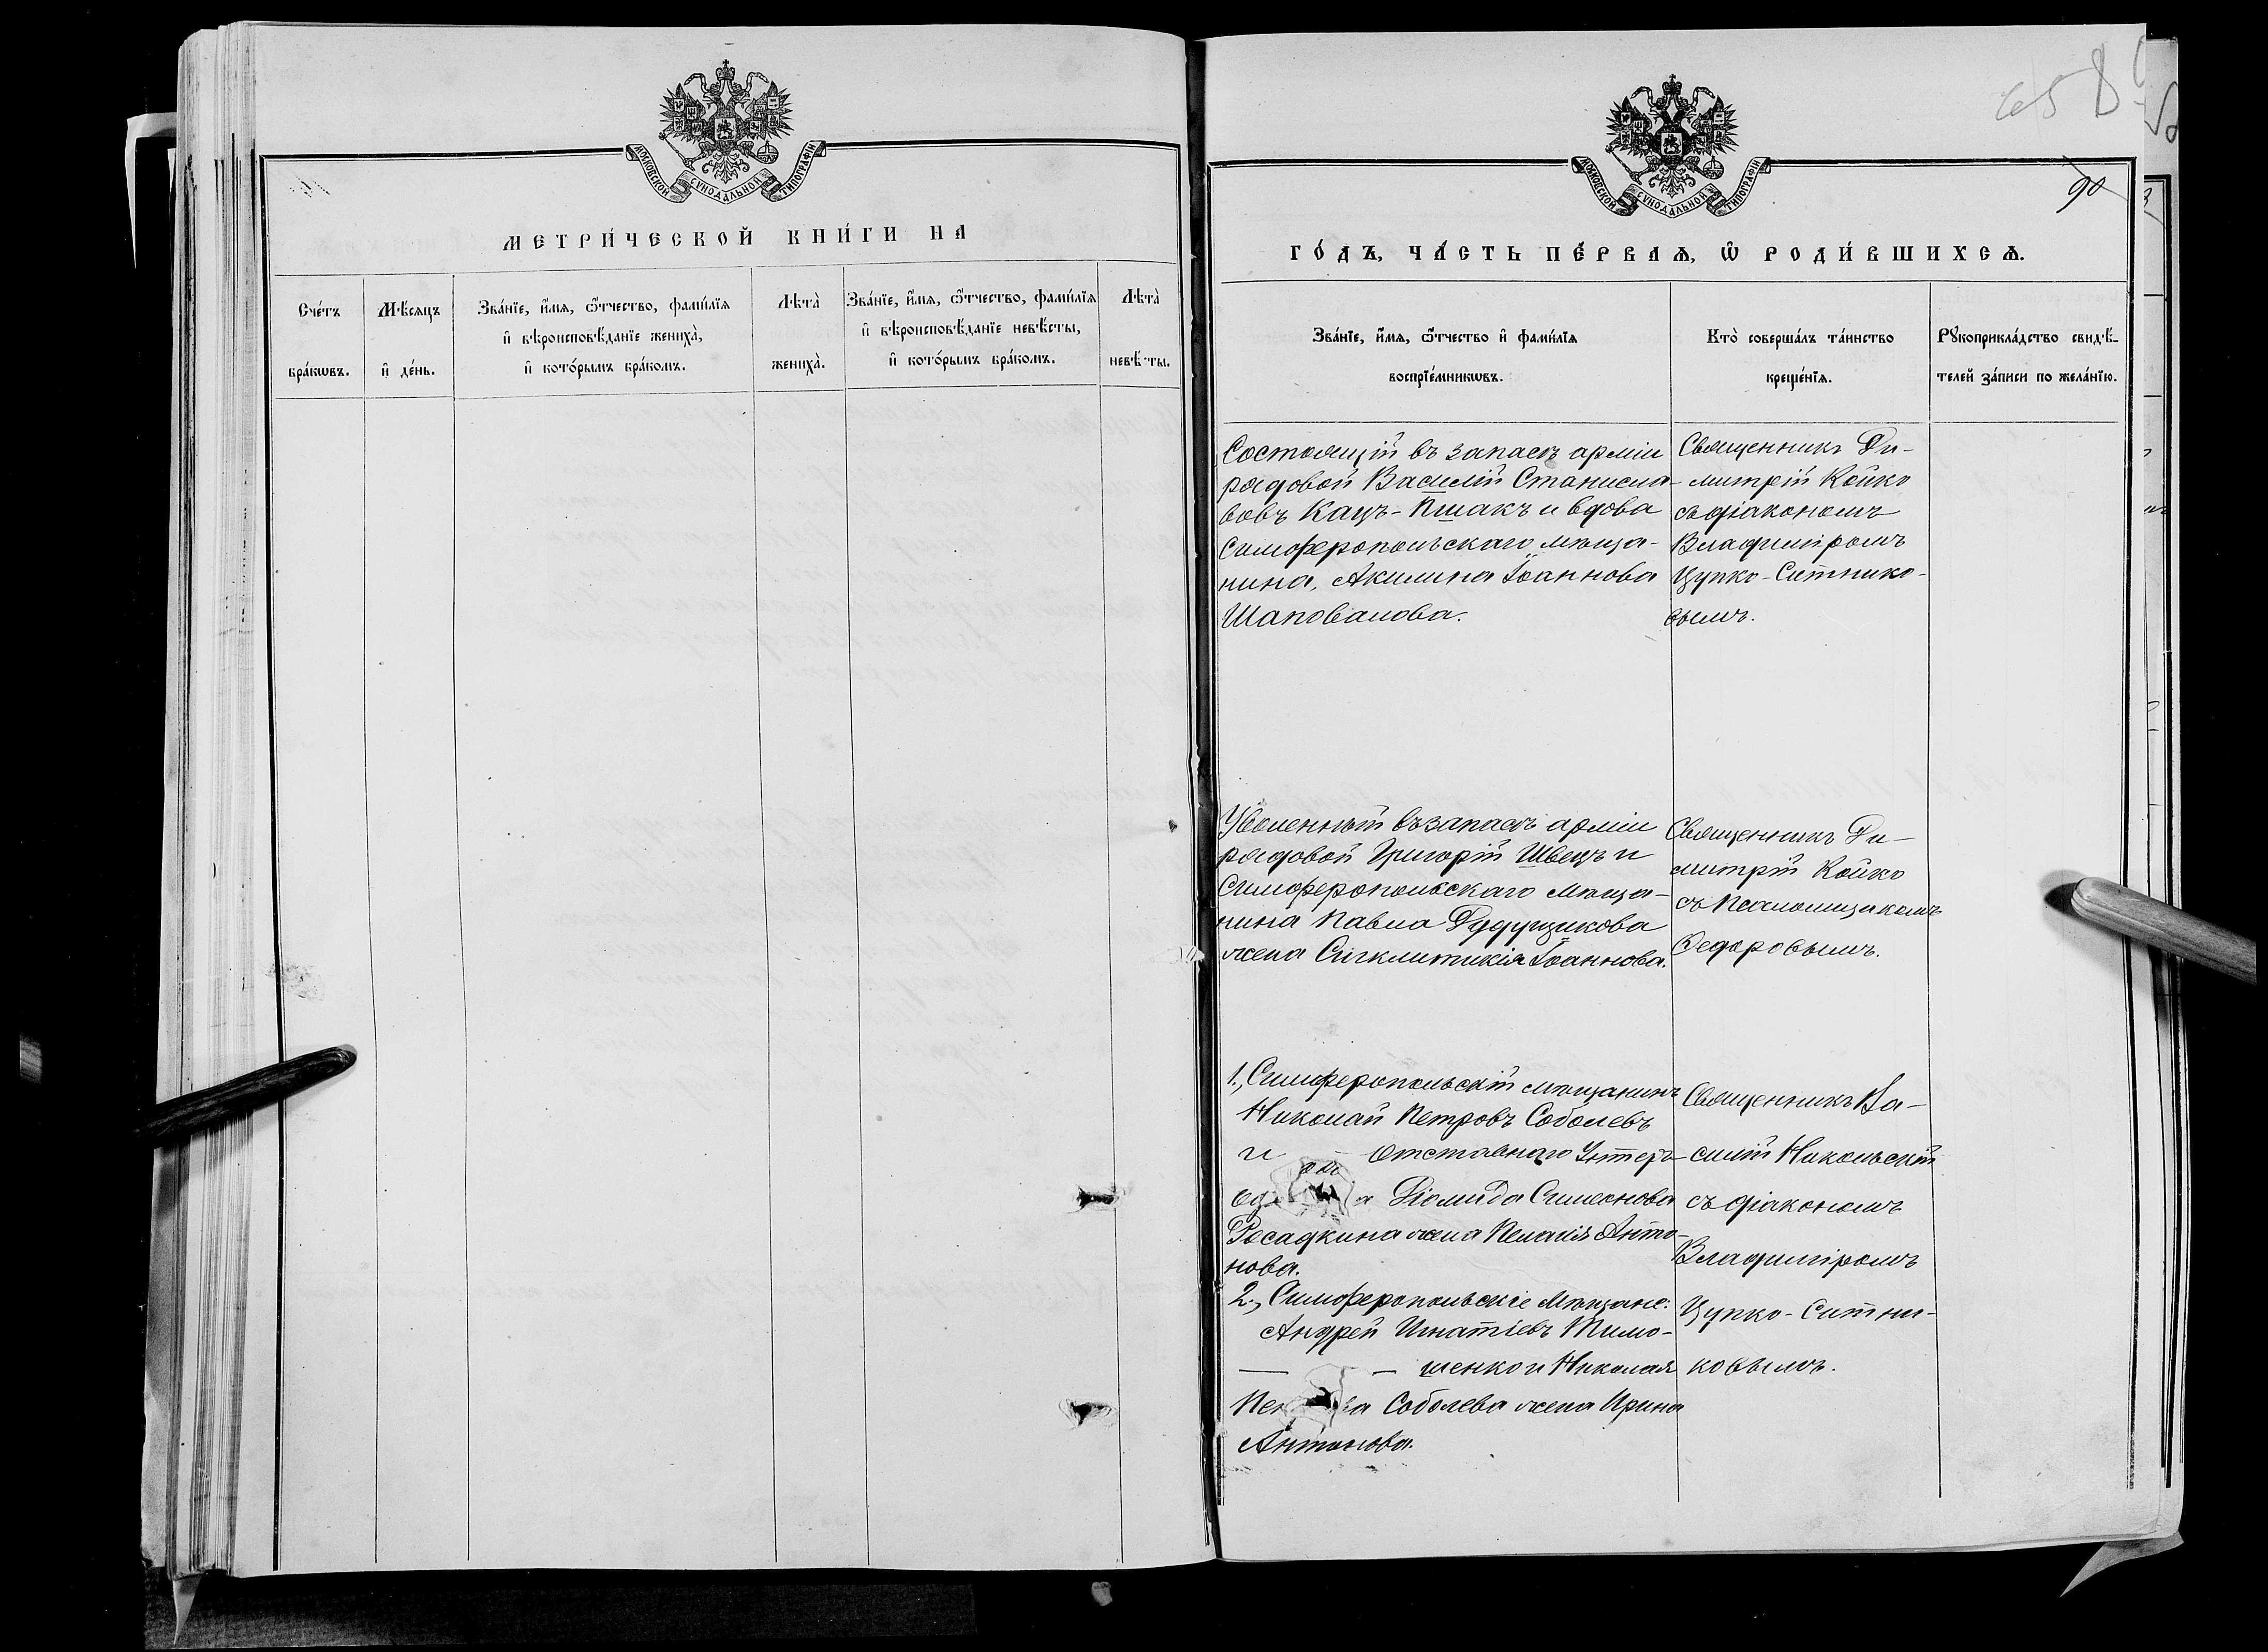 МОСКОВСКОЙ СѴНОДАЛЬНОЙ ТИПОГРАФІИ
МЕТРИ́ЧЕСКОЙ КНИ́ГИ НА
Сче́тъ бра́кѡвъ.
Мѣ́сяцъ и҆ де́нь.
Зва́нїе, и҆́мѧ, ѻ҆́тчество, фами́лїѧ
и҆ вѣроисповѣ́данїе жениха̀,
и҆ кото́рымъ бра́комъ.
Лѣта̀
жениха̀.
Зва́нїе, и҆́мѧ, ѻ҆́тчество, фами́лїѧ
и҆ вѣроисповѣ́данїе невѣ́сты,
и҆ кото́рымъ бра́комъ.
Лѣта̀
невѣ́ ты.
МОСКОВСКОЙ СѴНОДАЛЬНОЙ ТИПОГРАФІИ
90
ГО́ДЪ, ЧА́СТЬ ПЕ́РВАѦ, Ѡ҆ РОДИ́ВШИХСѦ.
Зва́нїе, и҆́мѧ, ѻ҆́тчество и҆ фами́лїѧ
воспрїе́мникѡвъ.
Кто̀ соверша́лъ та́инство
креще́нїѧ.
Рꙋкоприкла́дство свидѣ́-
телей за́писи по жела́нїю.
Состоящій въ запасѣ арміи
рядовой Василій Станисла-
вовъ Кацъ-Пшакъ и вдова
Симферопольскаго мѣща-
нина, Акилина Іоаннова
Шаповалова.
Священникъ Ди-
митрій Койко
съ діакономъ
Владиміромъ
Цупко-Ситнико-
вымъ.
Уволенный въ запасъ арміи
рядовой Григорій Швецъ и
Симферопольскаго мѣща-
нина Павла Дудущикова
жена Сигклитикія Іоаннова.
Священникъ Ди-
митрій Койко
съ Псаломщикомъ
Ѳедоровымъ.
1., Симферопольскій мѣщанинъ
Николай Петровъ Соболевъ
и отставнаго Унтеръ-
Діомида Симеонова
Росадкина жена Пелагія Анто-
нова.
2., Симферопольскіе мѣщане:
Андрей Игнатіевъ Тимо-
шенко и Николая
Соболева жена Ирина
Антонова.
Священникъ Ва-
силій Никольскій
съ діакономъ
Владиміромъ
Цупко-Ситни-
ковымъ.